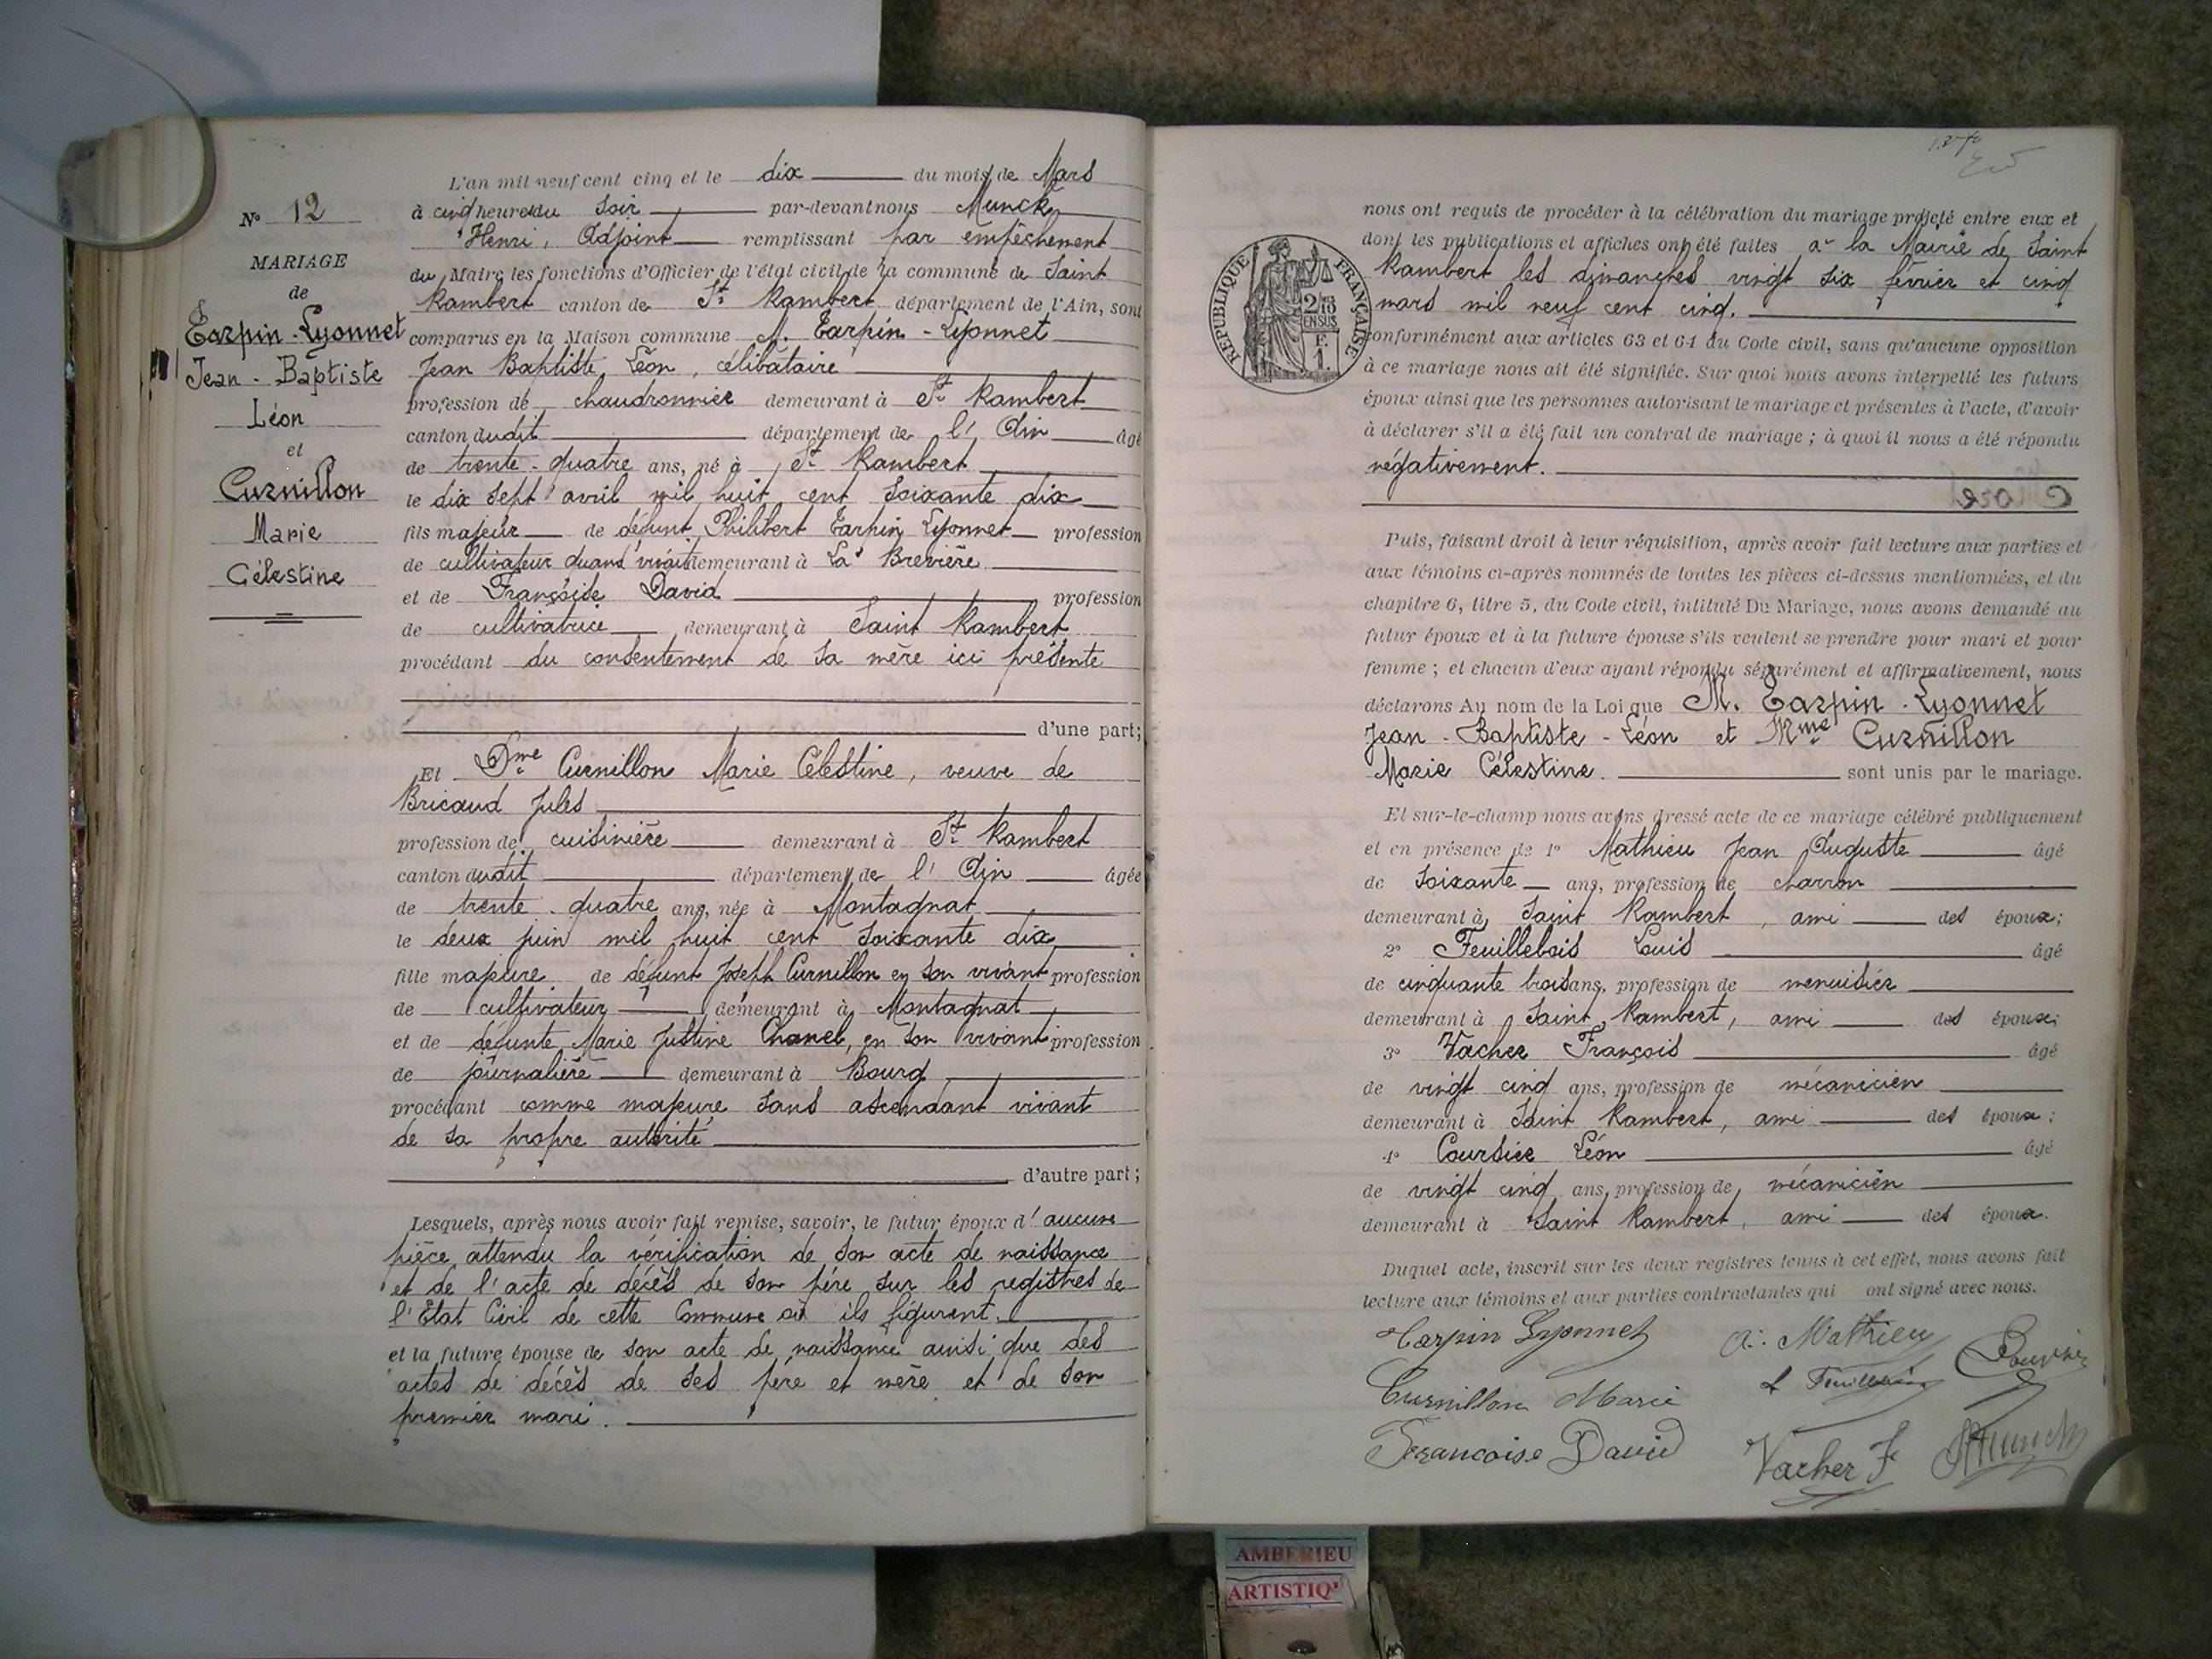 N° 12
MARIAGE
de
Tarpin-Lyonnet
Jean-Baptiste
Léon
et
Curnillon
Marie
Célestine
L'an mil neuf cent cinq et le dix du mois de Mars
à cinq heures du Soir par-devant nous Munck
Henri, Adjoint remplissant par empêchement
du Maire les fonctions d'Officier de l'état civil de la commune de Saint
Rambert canton de St Rambert département de l'Ain, sont
comparus en la Maison commune M. Tarpin-Lyonnet
Jean Baptiste Léon, célibataire
profession de chaudronnier demeurant à St Rambert
canton dudit département de l'Ain âgé
de trente-quatre ans, né à St Rambert
le dix sept avril mil huit cent soixante dix
fils majeur de défunt Philibert Tarpin Lyonnet profession
de cultivateur quand vivait demeurant à La Brevière
et de Françoise David profession
de cultivatrice demeurant à Saint Rambert
procédant du consentement de sa mère ici présente
d'une part;
Et Dme Curnillon Marie Célestine, veuve de
Bricaud Jules
profession de cuisinière demeurant à St Rambert
canton dudit département de l'Ain âgée
de trente-quatre ans, née à Montagnat
le deux juin mil huit cent soixante dix
fille majeure de défunt Joseph Curnillon en son vivant profession
de cultivateur demeurant à Montagnat
et de défunte Marie Justine Chanel, en son vivant profession
de journalière demeurant à Bourg
procédant comme majeure sans ascendant vivant
de sa propre autorité
d'autre part;
Lesquels, après nous avoir fait remise, savoir, le futur époux d'aucune
pièce attendu la vérification de son acte de naissance
et de l'acte de décès de son père sur les registres de
l'Etat Civil de cette Commune où ils figurent.
et la future épouse de son acte de naissance ainsi que des
actes de décès de ses père et mère et de son
premier mari.
nous ont requis de procéder à la célébration du mariage projeté entre eux et
dont les publications et affiches ont été faites à la Mairie de Saint
Rambert les dimanches vingt six février et cinq
mars mil neuf cent cinq.
RÉPUBLIQUE FRANÇAISE
2/10
EN SUS
F.
1.
conformément aux articles 63 et 64 du Code civil, sans qu'aucune opposition
à ce mariage nous ait été signifiée. Sur quoi nous avons interpellé les futurs
époux ainsi que les personnes autorisant le mariage et présentes à l'acte, d'avoir
à déclarer s'il a été fait un contrat de mariage; à quoi il nous a été répondu
négativement.
Puis, faisant droit à leur réquisition, après avoir fait lecture aux parties et
aux témoins ci-après nommés de toutes les pièces ci-dessus mentionnées, et du
chapitre 6, titre 5, du Code civil, intitulé Du Mariage, nous avons demandé au
futur époux et à la future épouse s'ils veulent se prendre pour mari et pour
femme; et chacun d'eux ayant répondu séparément et affirmativement, nous
déclarons Au nom de la Loi que M. Tarpin-Lyonnet
Jean-Baptiste-Léon et Mme Curnillon
Marie Célestine. sont unis par le mariage.
Et sur-le-champ nous avons dressé acte de ce mariage célébré publiquement
et en présence de 1° Mathieu Jean Auguste âgé
de soixante ans, profession de charron
demeurant à Saint Rambert, ami des époux;
2° Feuillebois Louis âgé
de cinquante trois ans, profession de menuisier
demeurant à Saint Rambert, ami des époux;
3° Vacher François âgé
de vingt cinq ans, profession de mécanicien
demeurant à Saint Rambert, ami des époux;
4° Coursier Léon âgé
de vingt cinq ans, profession de mécanicien
demeurant à Saint Rambert, ami des époux.
Duquel acte, inscrit sur les deux registres tenus à cet effet, nous avons fait
lecture aux témoins et aux parties contractantes qui ont signé avec nous.
Tarpin Lyonnet A. Mathieu
Curnillon Marie
Françoise David Vacher F HMunck
AMBERIEU
ARTISTIQ'